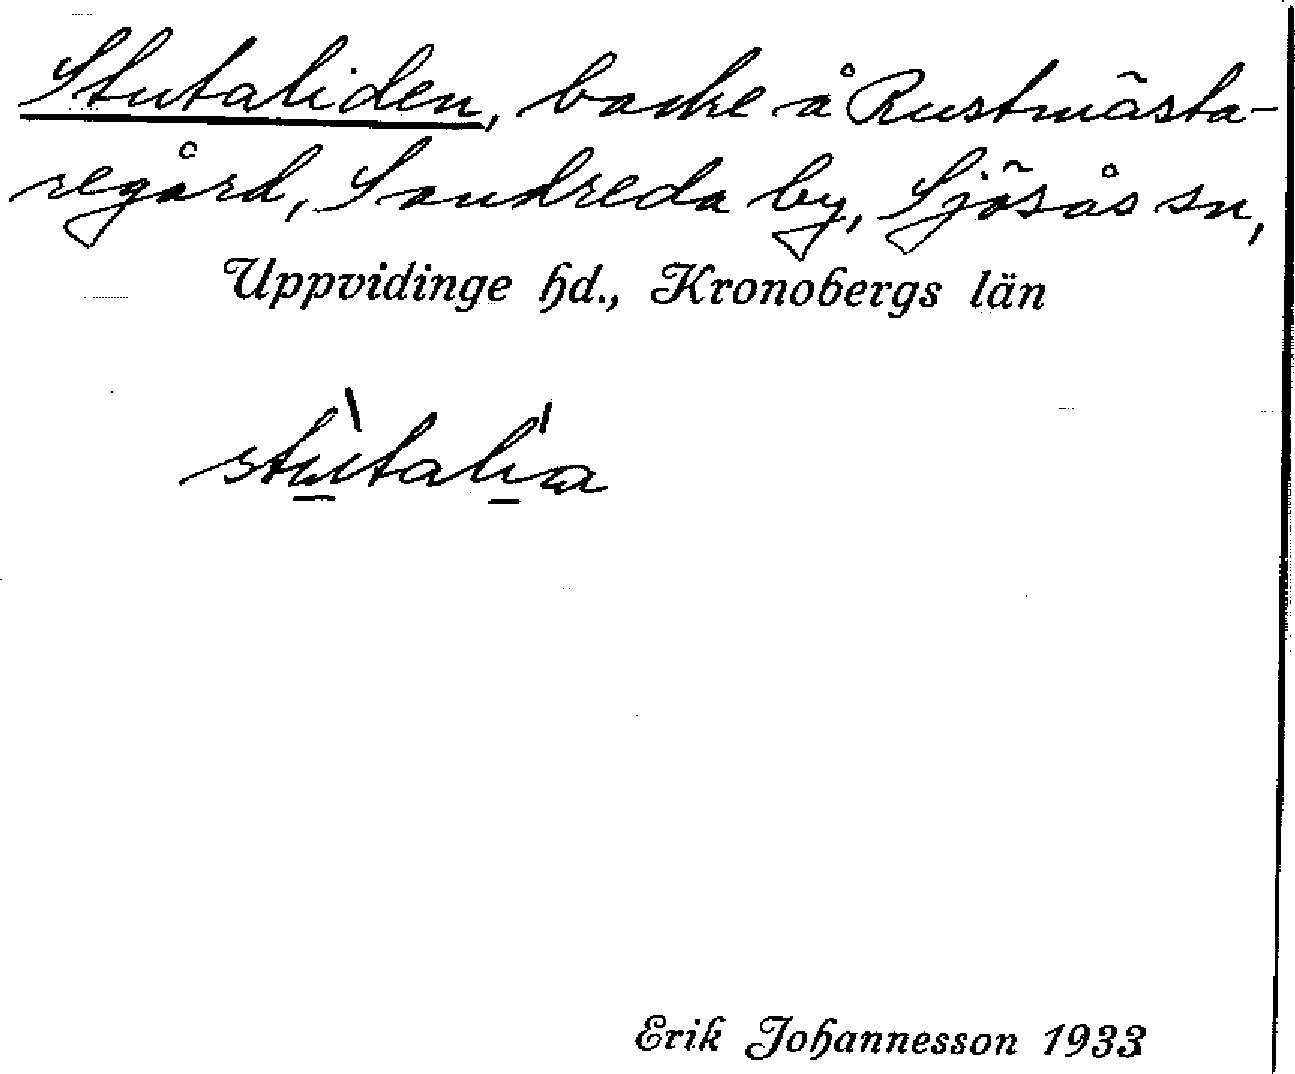 Stutaliden, backe å Rustmästa-
regård, Sandreda by, Sjösås sn,
Uppvidinge hd., Kronobergs län
stù̱talí̱a
Erik Johannesson 1933